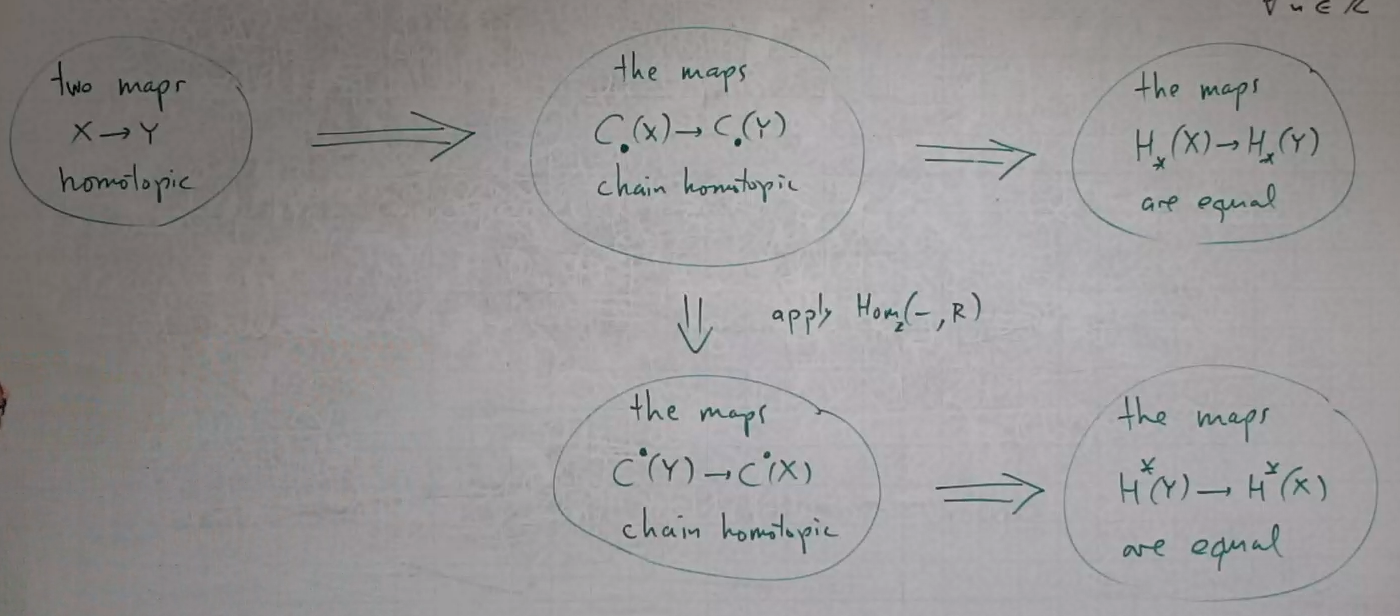 ∀ n ∈ ℤ
two maps
X → Y
homotopic
⟹
the maps
C•(X) → C•(Y)
chain homotopic
⟹
the maps
H_*(X) → H_*(Y)
are equal
⇓ apply Hom_ℤ(-, R)
the maps
C^•(Y) → C^•(X)
chain homotopic
⟹
the maps
H^*(Y) → H^*(X)
are equal